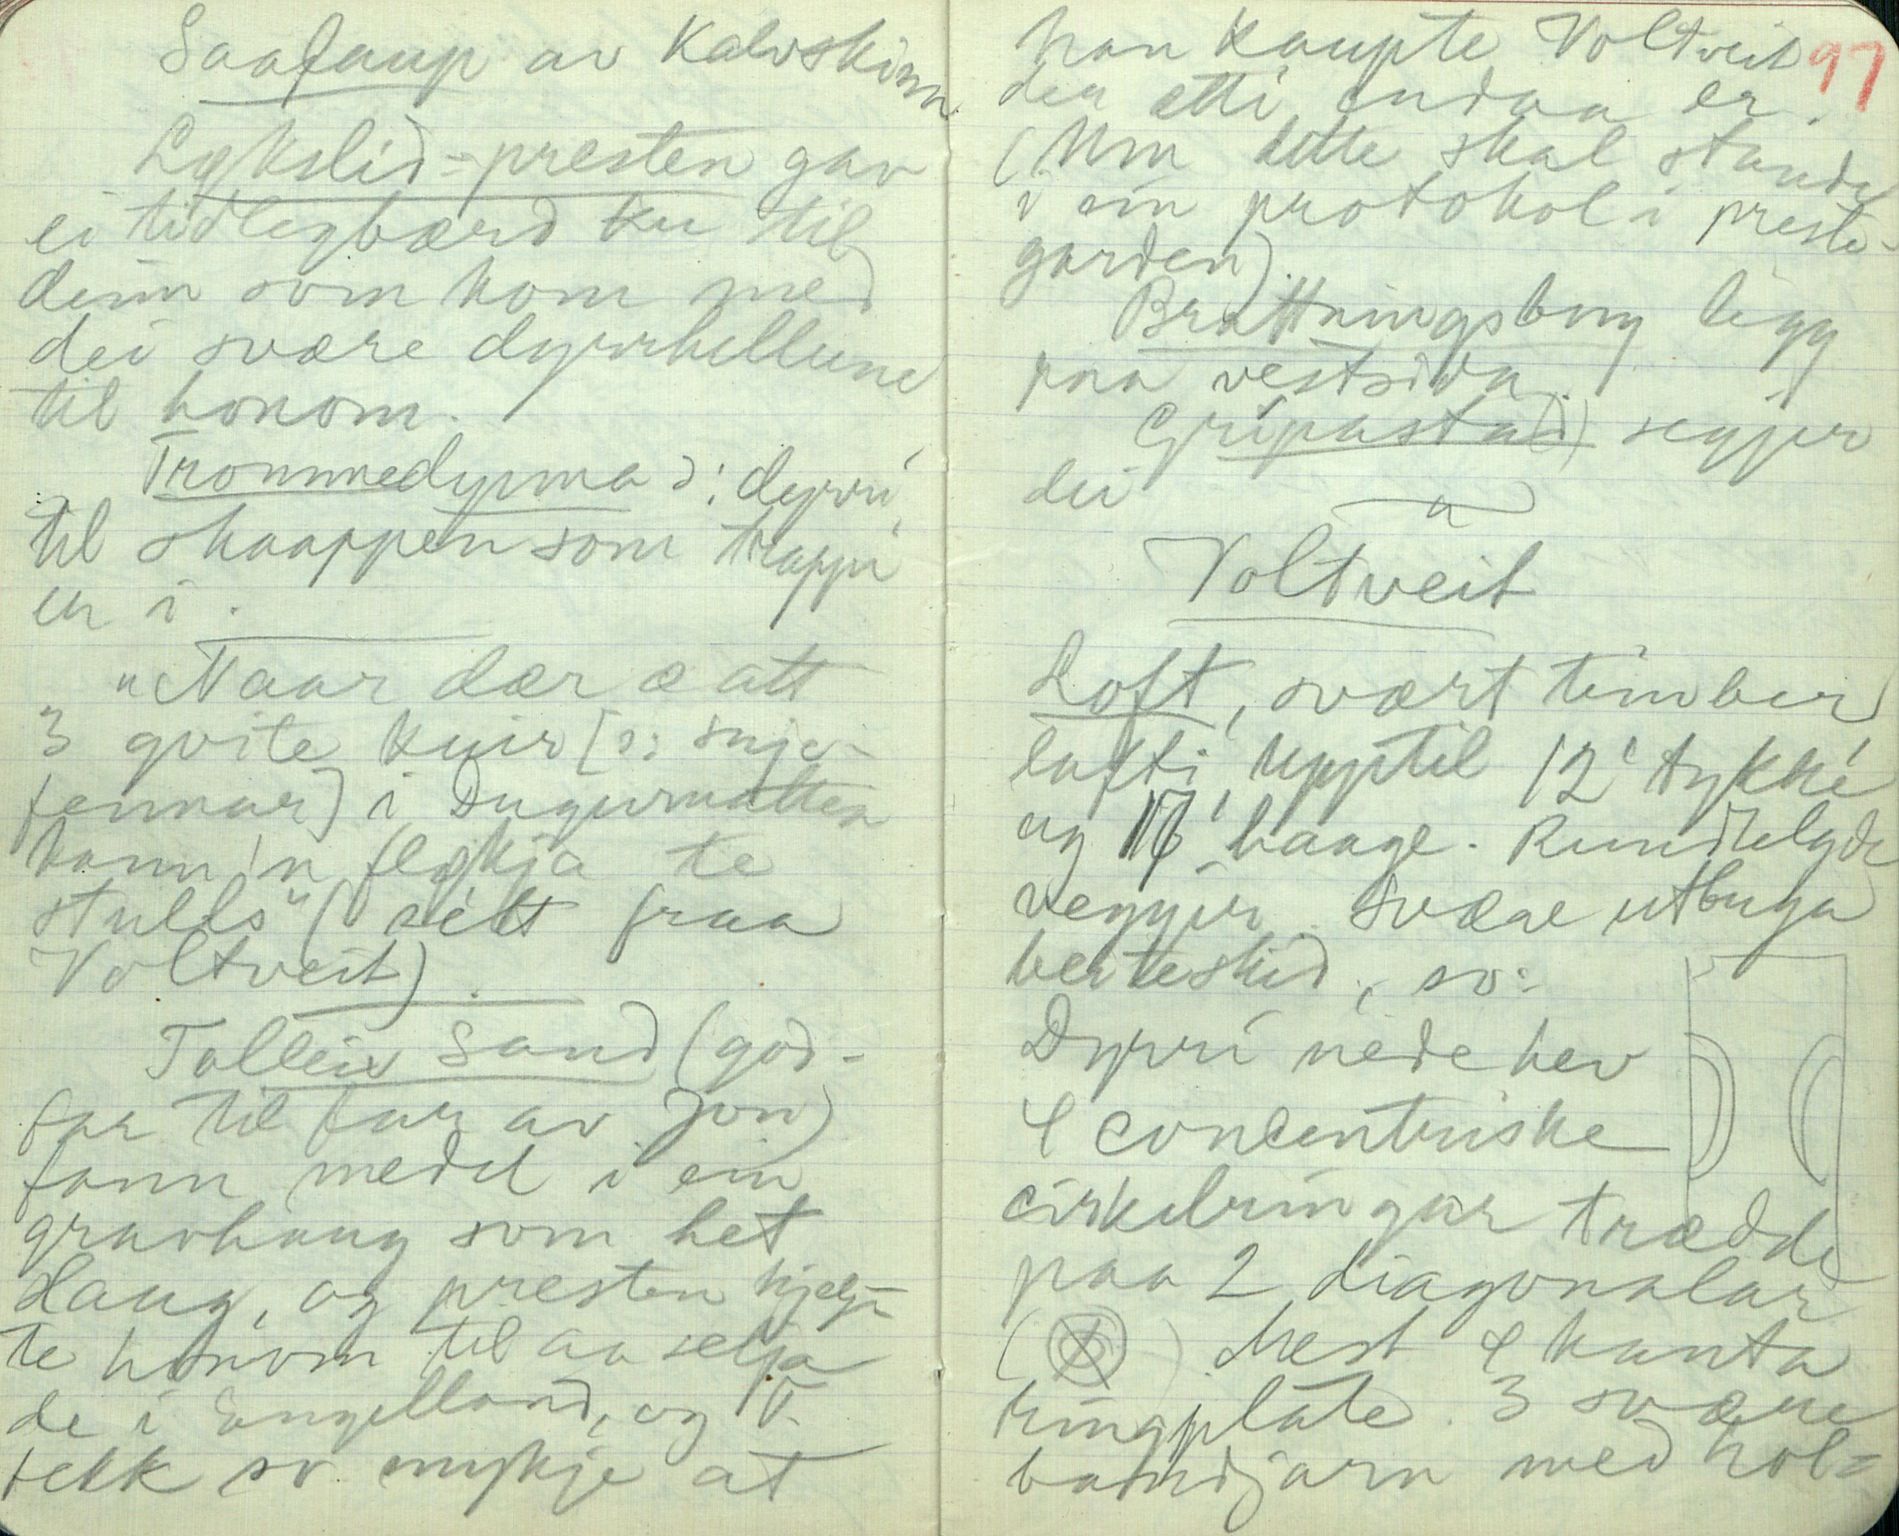 Saalaup av Kalvskinn
Lykslid-presten gav
ei tidlegbærd ku til
deim som kom med
dei svære dyrrhellune
til honom.
Trommedynna ɔ: dyrri
til skaappen som trappi
er i.
"Naar dær æ att
3 qvite kuir [ɔ: snje-
fennar] i Dugurmatten
kann 'n fløkja te
stulls" (sétt fraa
Voltveit).
Talleiv Sand (god-
far til far av Jon)
fann medel i ein
gravhaug som het
Haug, og presten hjelp-
te honom til aa selja
de i Engelland, og T.
fekk so mykje at
han kaupte Voltveit 97
der ætti endaa er.
(Um dette skal standa
i ein protokol i preste-
garden).
Brattningsborg ligg
paa vestsida.
Gripasta(d) segjer
dei
Voltveit
Loft, svært timber
lafti, upptil 12' tykke
og 16' haage. Rundtelgde
veggjir. Svære utbuga
beiteskid, so:
Dyrri nede hev
4 concentriske
cirkelringar trædde
paa 2 diagonalar
( ). Mest 4 kanta
ringplate. 3 svære
bandjarn med hol=